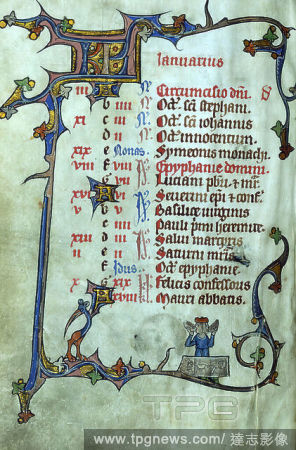 Ianuarius
iii A N Circumcisio dni. S
b iiii N Oct. sci stephani.
xi c iii N Oct. sci iohannis
d ii N Oct. innocentum.
xix e Nonas. Symeonis monachi
viii f viii Epyphanie domini
g vii Luciani pbri
xvi A vi Seuerini epi
v b v Basilice uirginis
c Pauli pmi heremite
xiii d iii Salui martyris
ii e ii Saturni
f Idus. Oct. epyphanie.
x g xix Felicis confessoris
A xviii Mauri abbatis.
TPG
www.tpgnews.com / 達志影像